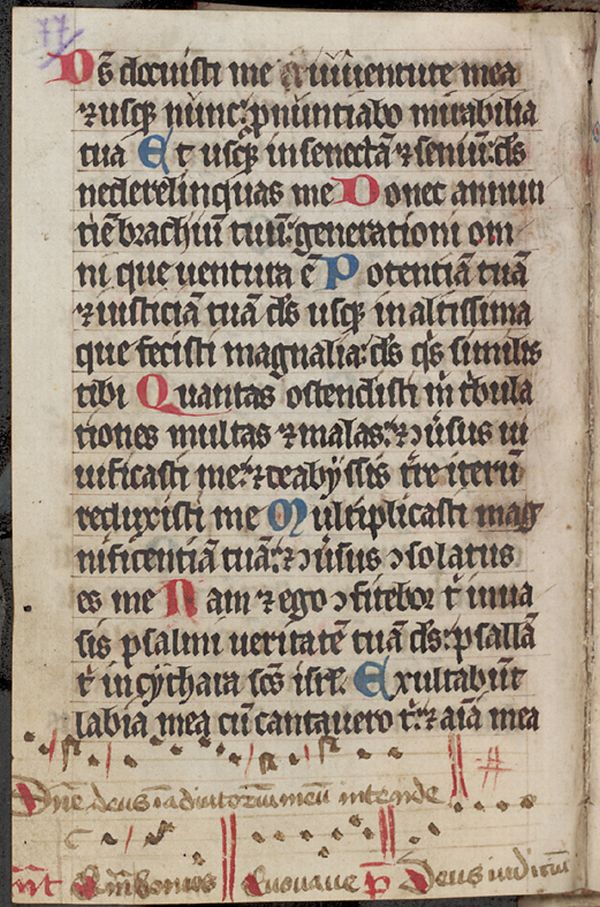 77
Ds̄ docuisti me a iuuentute mea
⁊ usqꝫ nunc: ꝓnuntiabo mirabilia
tua Et usqꝫ in senectā ⁊ seniū: ds̄
ne derelinquas me Donec annun
tiē brachiū tuū: generationi om
ni que uentura ē Potentiā tuā
⁊ iusticiā tuā ds̄ usqꝫ in altissima
que fecisti magnalia: ds̄ qͥs similis
tibi Quantas ostendisti m̄ tͥbula
tiones multas ⁊ malas: ⁊ ꝯūsus ui
uificasti me: ⁊ de abyssis tr̄e iterū
reduxisti me Multiplicasti mag
nificentiā tuā: ⁊ ꝯūsus ꝯsolatus
es me Nam ⁊ ego ꝯfitebor tͥ in ua
sis psalmi ueritatē tuā ds̄: psallā
tͥ in cythara scs̄ isrl̄. Exultabūt
labia mea cū cantauero tͥ: ⁊ aīā mea
Dn̄e deus ī adiutoriū meū intende
Euouaue p̄ Deus iudiciū